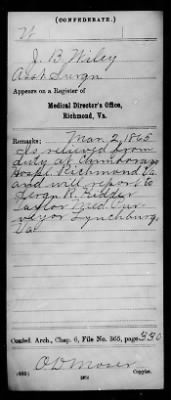 (CONFEDERATE.)
W
J. B. Wiley
Asst Surgn
Appears on a Register of
Medical Director's Office,
Richmond, Va.
Remarks: Mar 2, 1865
Is relieved from
duty at Chimborazo
Hospl Richmond Va
and will report to
Surgn R. Kidder
Taylor Med Pur-
veyor Lynchburg,
Va
Confed. Arch., Chap. 6, File No. 365, page 330
O D Moser
Copyist.